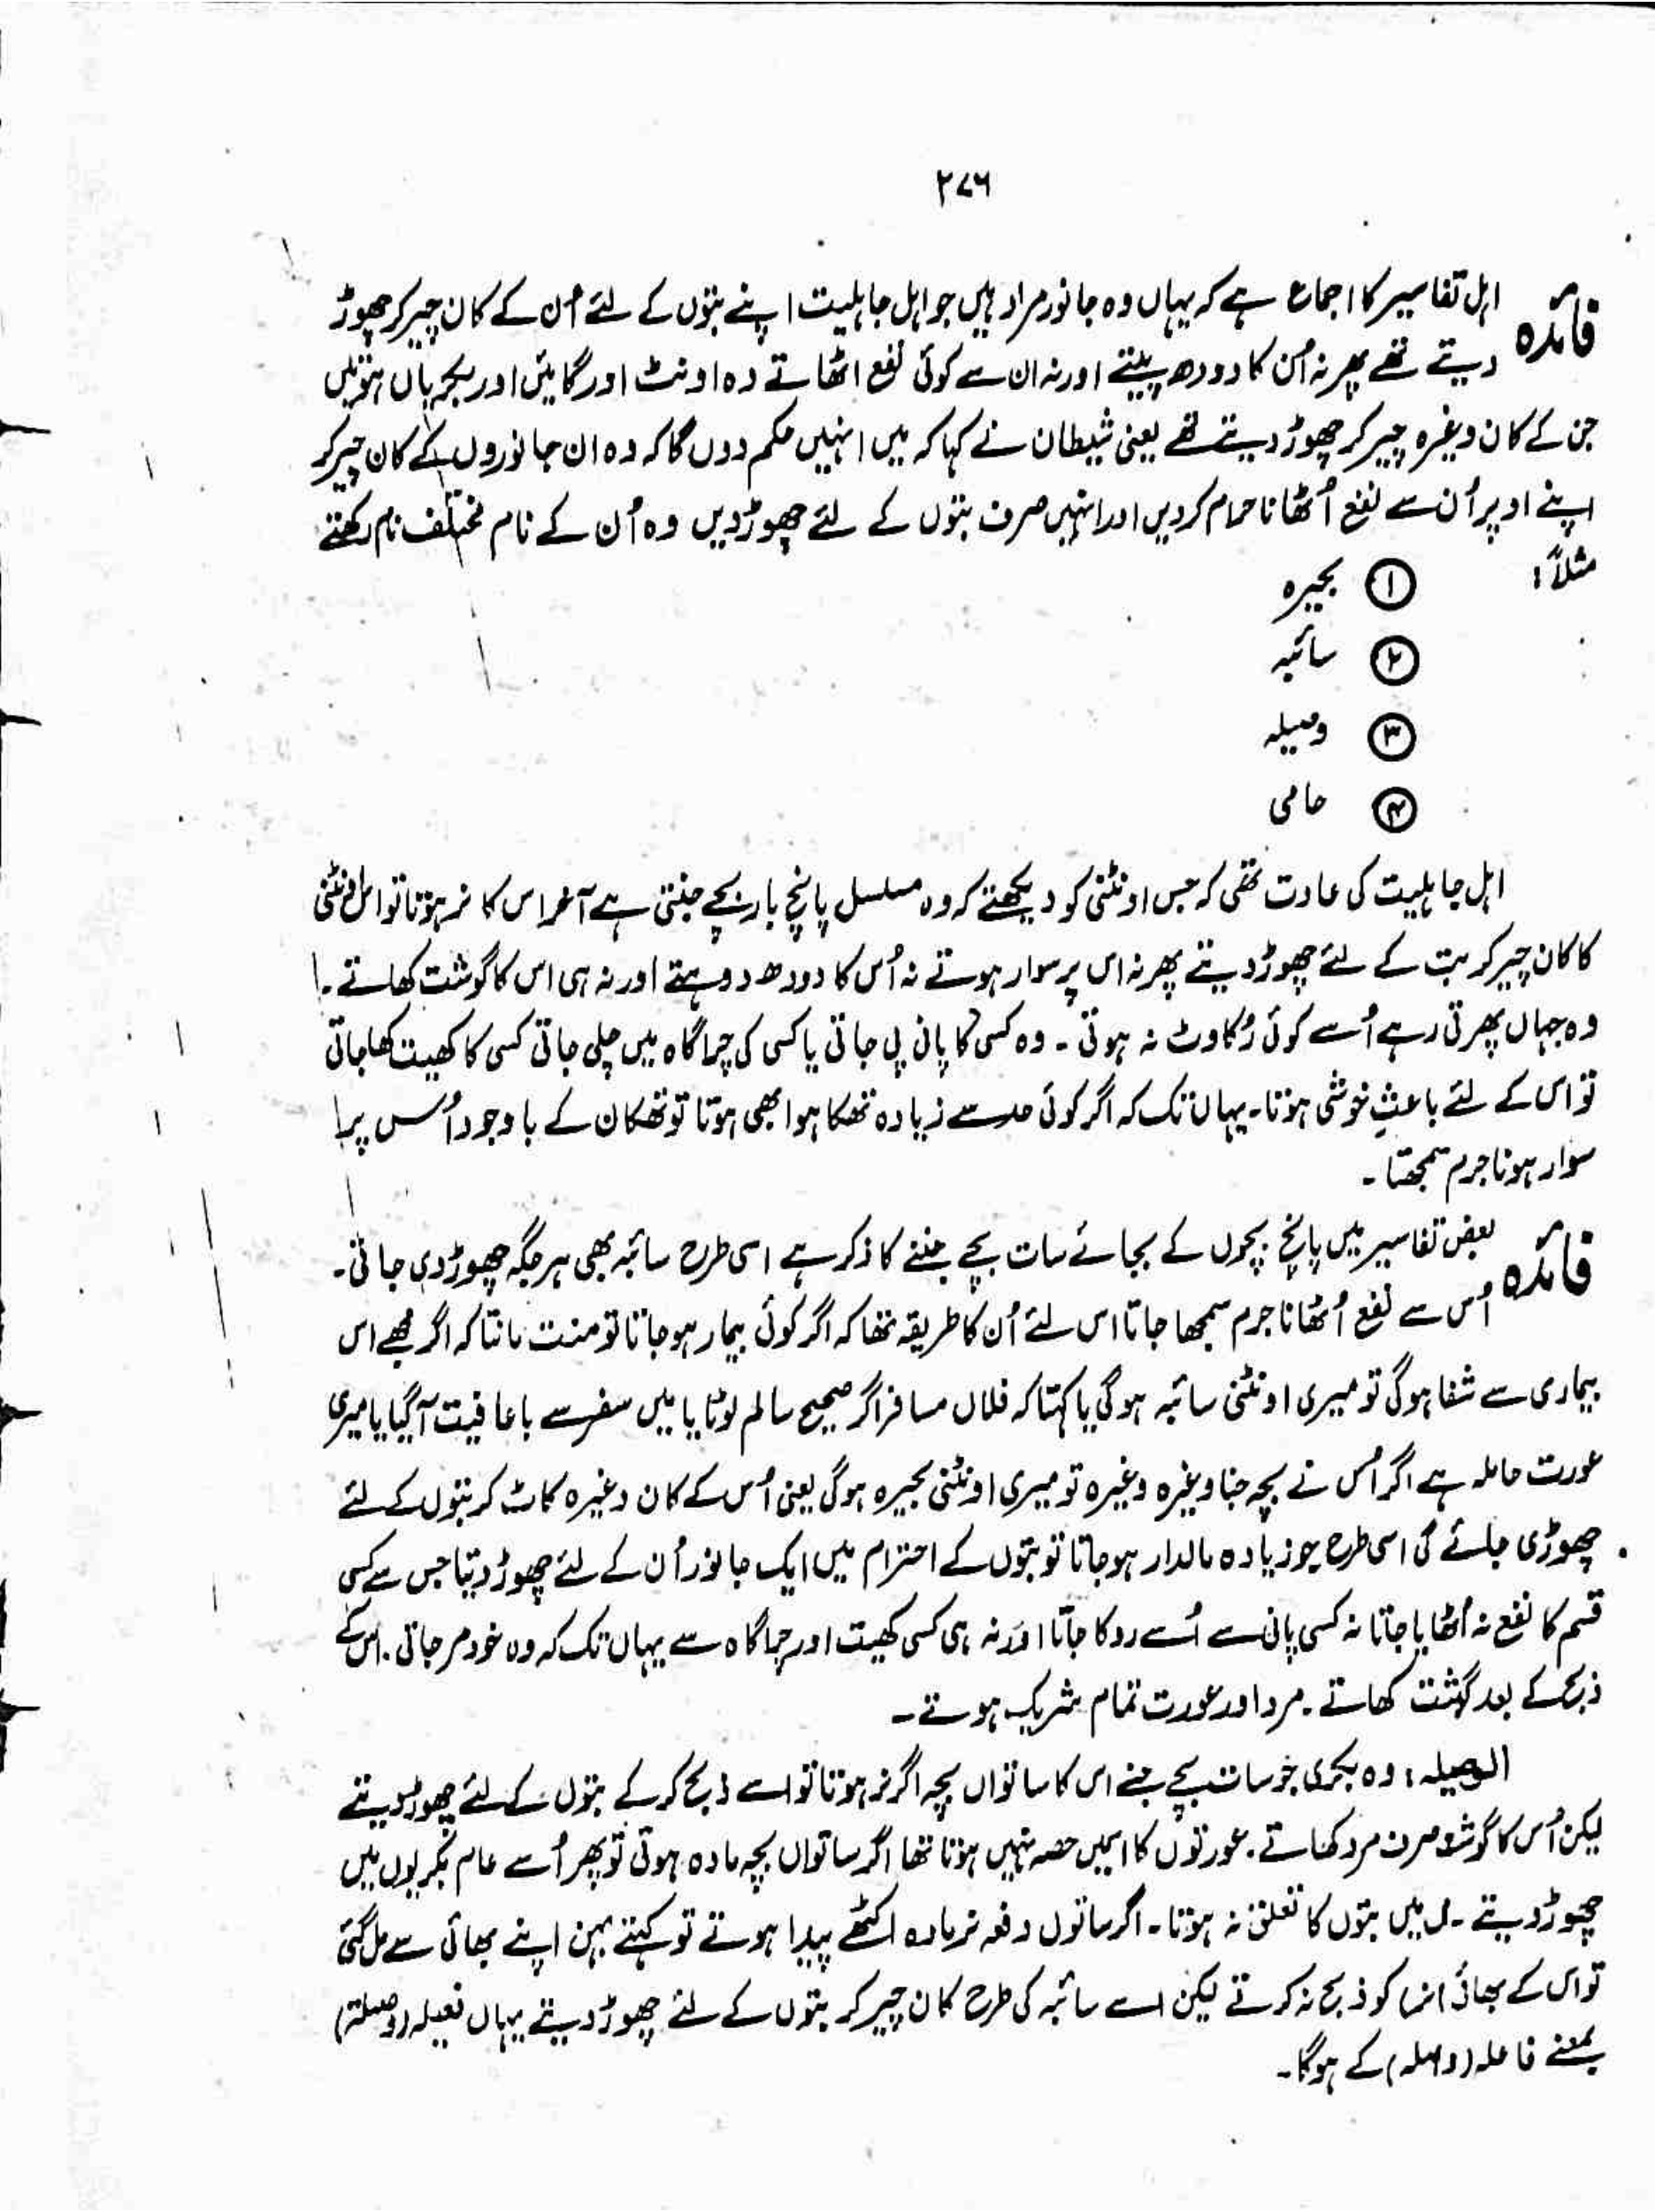 ۲۷۶
فائدہ اہل تفاسیر کا اجماع ہے کہ یہاں وہ جانور مراد ہیں جو اہل جاہلیت اپنے بتوں کے لئے اُن کے کان چیر کر چھوڑ
دیتے تھے پھر نہ اُن کا دودھ پیتے اور نہ ان سے کوئی نفع اٹھاتے وہ اونٹ اور گائیں اور بکریاں ہوتیں
جن کے کان وغیرہ چیر کر چھوڑ دیتے تھے یعنی شیطان نے کہا کہ میں انہیں حکم دوں گا کہ وہ ان جانوروں کے کان چیر کر
اپنے اوپر اُن سے نفع اُٹھانا حرام کر دیں اور انہیں صرف بتوں کے لئے چھوڑ دیں وہ اُن کے نام مختلف نام رکھتے
مثلاً :
① بحیرہ
② سائبہ
③ وصیلہ
④ حامی
اہل جاہلیت کی عادت تھی کہ جس اونٹنی کو دیکھتے کہ وہ مسلسل پانچ بار بچے جنتی ہے آخر اس کا نر ہوتا تو اس اونٹنی
کا کان چیر کر بت کے لئے چھوڑ دیتے پھر نہ اس پر سوار ہوتے نہ اُس کا دودھ دوہتے اور نہ ہی اس کا گوشت کھاتے ۔
وہ جہاں پھرتی رہے اُسے کوئی رُکاوٹ نہ ہوتی ۔ وہ کسی کا پانی پی جاتی یا کسی کی چراگاہ میں چلی جاتی کسی کا کھیت کھا جاتی
تو اس کے لئے باعثِ خوشی ہوتا ۔ یہاں تک کہ اگر کوئی حد سے زیادہ تھکا ہوا بھی ہوتا تو تھکان کے باوجود اُس پر
سوار ہونا جرم سمجھتا ۔
فائدہ بعض تفاسیر میں پانچ بچوں کے بجائے سات بچے جننے کا ذکر ہے اسی طرح سائبہ بھی ہر جگہ چھوڑ دی جاتی ۔
اُس سے نفع اُٹھانا جرم سمجھا جاتا اس لئے اُن کا طریقہ تھا کہ اگر کوئی بیمار ہو جاتا تو منت مانتا کہ اگر مجھے اس
بیماری سے شفا ہوگی تو میری اونٹنی سائبہ ہوگی یا کہتا کہ فلاں مسافر اگر صحیح سالم لوٹا یا میں سفر سے باعافیت آگیا یا میری
عورت حاملہ ہے اگر اُس نے بچہ جنا وغیرہ وغیرہ تو میری اونٹنی بحیرہ ہوگی یعنی اُس کے کان وغیرہ کاٹ کر بتوں کے لئے
چھوڑی جائے گی اسی طرح جو زیادہ مالدار ہو جاتا تو بتوں کے احترام میں ایک جانور اُن کے لئے چھوڑ دیتا جس سے کسی
قسم کا نفع نہ اُٹھایا جاتا نہ کسی پانی سے اُسے روکا جاتا اور نہ ہی کسی کھیت اور چراگاہ سے یہاں تک کہ وہ خود مر جاتی ۔ اس کے
ذبح کے بعد گوشت کھاتے ۔ مرد اور عورت تمام شریک ہوتے ۔
الوصیلہ : وہ بکری جو سات بچے جنے اس کا ساتواں بچہ اگر نر ہوتا تو اسے ذبح کر کے بتوں کے لئے چھوڑ دیتے
لیکن اُس کا گوشت صرف مرد کھاتے ۔ عورتوں کا اسمیں حصہ نہیں ہوتا تھا اگر ساتواں بچہ مادہ ہوتی تو پھر اُسے عام بکریوں میں
چھوڑ دیتے ۔ میں بتوں کا تعلق نہ ہوتا ۔ اگر ساتوں دفعہ نر مادہ اکٹھے پیدا ہوتے تو کہتے بہن اپنے بھائی سے مل گئی
تو اس کے بھائی کو ذبح نہ کرتے لیکن اسے سائبہ کی طرح کان چیر کر بتوں کے لئے چھوڑ دیتے یہاں فعیلہ (وصیلۃ)
بمعنے فاعلہ (واصلہ) کے ہوگا ۔